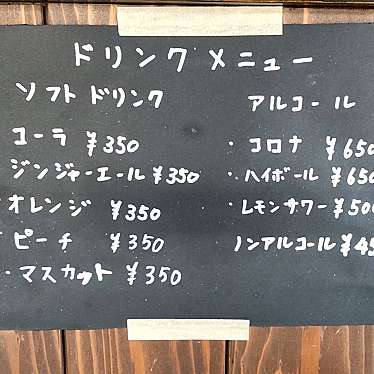 ドリンクメニュー
ソフトドリンク
コーラ ¥350
ジンジャーエール ¥350
オレンジ ¥350
ピーチ ¥350
・マスカット ¥350
アルコール
・コロナ ¥650
・ハイボール ¥650
・レモンサワー ¥50
ノンアルコール ¥45